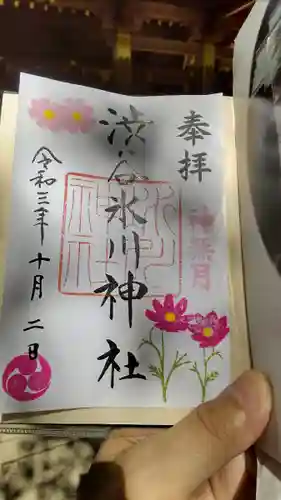 奉拝
神無月
渋谷氷川神社
令和三年十月二日